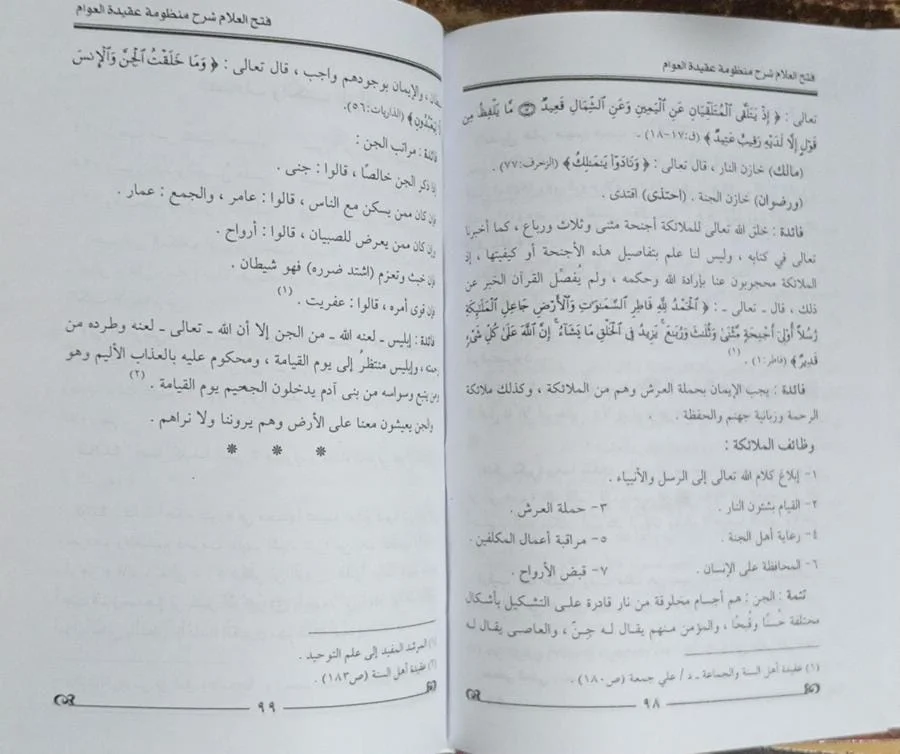 فتح العلام شرح منظومة عقيدة العوام
تعالى : ﴿ إِذْ يَتَلَقَّى الْمُتَلَقِّيَانِ عَنِ الْيَمِينِ وَعَنِ الشِّمَالِ قَعِيدٌ ۝ مَّا يَلْفِظُ مِن
قَوْلٍ إِلَّا لَدَيْهِ رَقِيبٌ عَتِيدٌ ﴾ (ق:١٧-١٨) .
(مالك) خازن النار ، قال تعالى : ﴿ وَنَادَوْا يَمَالِكُ ﴾ (الزخرف:٧٧) .
(ورضوان) خازن الجنة . (احتذى) اقتدى .
فائدة : خلق الله تعالى للملائكة أجنحة مثنى وثلاث ورباع ، كما أخبرنا
تعالى في كتابه ، وليس لنا علم بتفاصيل هذه الأجنحة أو كيفيتها ، إذ
الملائكة محجوبون عنا بإرادة الله وحكمه ، ولم يُفصِّل القرآن الخبر عن
ذلك ، قال ـ تعالى ـ : ﴿ الْحَمْدُ لِلَّهِ فَاطِرِ السَّمَوَاتِ وَالْأَرْضِ جَاعِلِ الْمَلَائِكَةِ
رُسُلًا أُولِي أَجْنِحَةٍ مَّثْنَى وَثُلَاثَ وَرُبَاعَ يَزِيدُ فِي الْخَلْقِ مَا يَشَاءُ إِنَّ اللَّهَ عَلَى كُلِّ شَيْءٍ
قَدِيرٌ ﴾ (فاطر:١) . (١)
فائدة : يجب الإيمان بحملة العرش وهم من الملائكة ، وكذلك ملائكة
الرحمة وزبانية جهنم والحفظة .
وظائف الملائكة :
١- إبلاغ كلام الله تعالى إلى الرسل والأنبياء .
٢- القيام بشئون النار . ٣- حملة العرش .
٤- رعاية أهل الجنة . ٥- مراقبة أعمال المكلفين .
٦- المحافظة على الإنسان . ٧- قبض الأرواح .
تتمة : الجن : هم أجسام مخلوقة من نار قادرة على التشكيل بأشكال
مختلفة حُسنًا وقُبحًا ، والمؤمن منهم يقال له جِنّ ، والعاصي يقال له
(١) عقيدة أهل السنة والجماعة ـ د / علي جمعة (ص١٨٠) .
٩٨
فتح العلام شرح منظومة عقيدة العوام
، والإيمان بوجودهم واجب ، قال تعالى : ﴿ وَمَا خَلَقْتُ الْجِنَّ وَالْإِنسَ
لِيَعْبُدُونِ ﴾ (الذاريات:٥٦) .
فائدة : مراتب الجن :
إذا ذكر الجن خالصًا ، قالوا : جنى .
فإن كان ممن يسكن مع الناس ، قالوا : عامر ، والجمع : عمار .
وإن كان ممن يعرض للصبيان ، قالوا : أرواح .
فإن خبث وتعزم (اشتد ضرره) فهو شيطان .
فإن قوى أمره ، قالوا : عفريت . (١)
فائدة : إبليس ـ لعنه الله ـ من الجن إلا أن الله ـ تعالى ـ لعنه وطرده من
رحمته ، وإبليس منتظرٌ إلى يوم القيامة ، ومحكوم عليه بالعذاب الأليم وهو
ومن يتبع وسواسه من بنى آدم يدخلون الجحيم يوم القيامة . (٢)
والجن يعيشون معنا على الأرض وهم يروننا ولا نراهم .
* * *
(١) المرشد المفيد إلى علم التوحيد .
(٢) عقيدة أهل السنة (ص١٨٣) .
٩٩